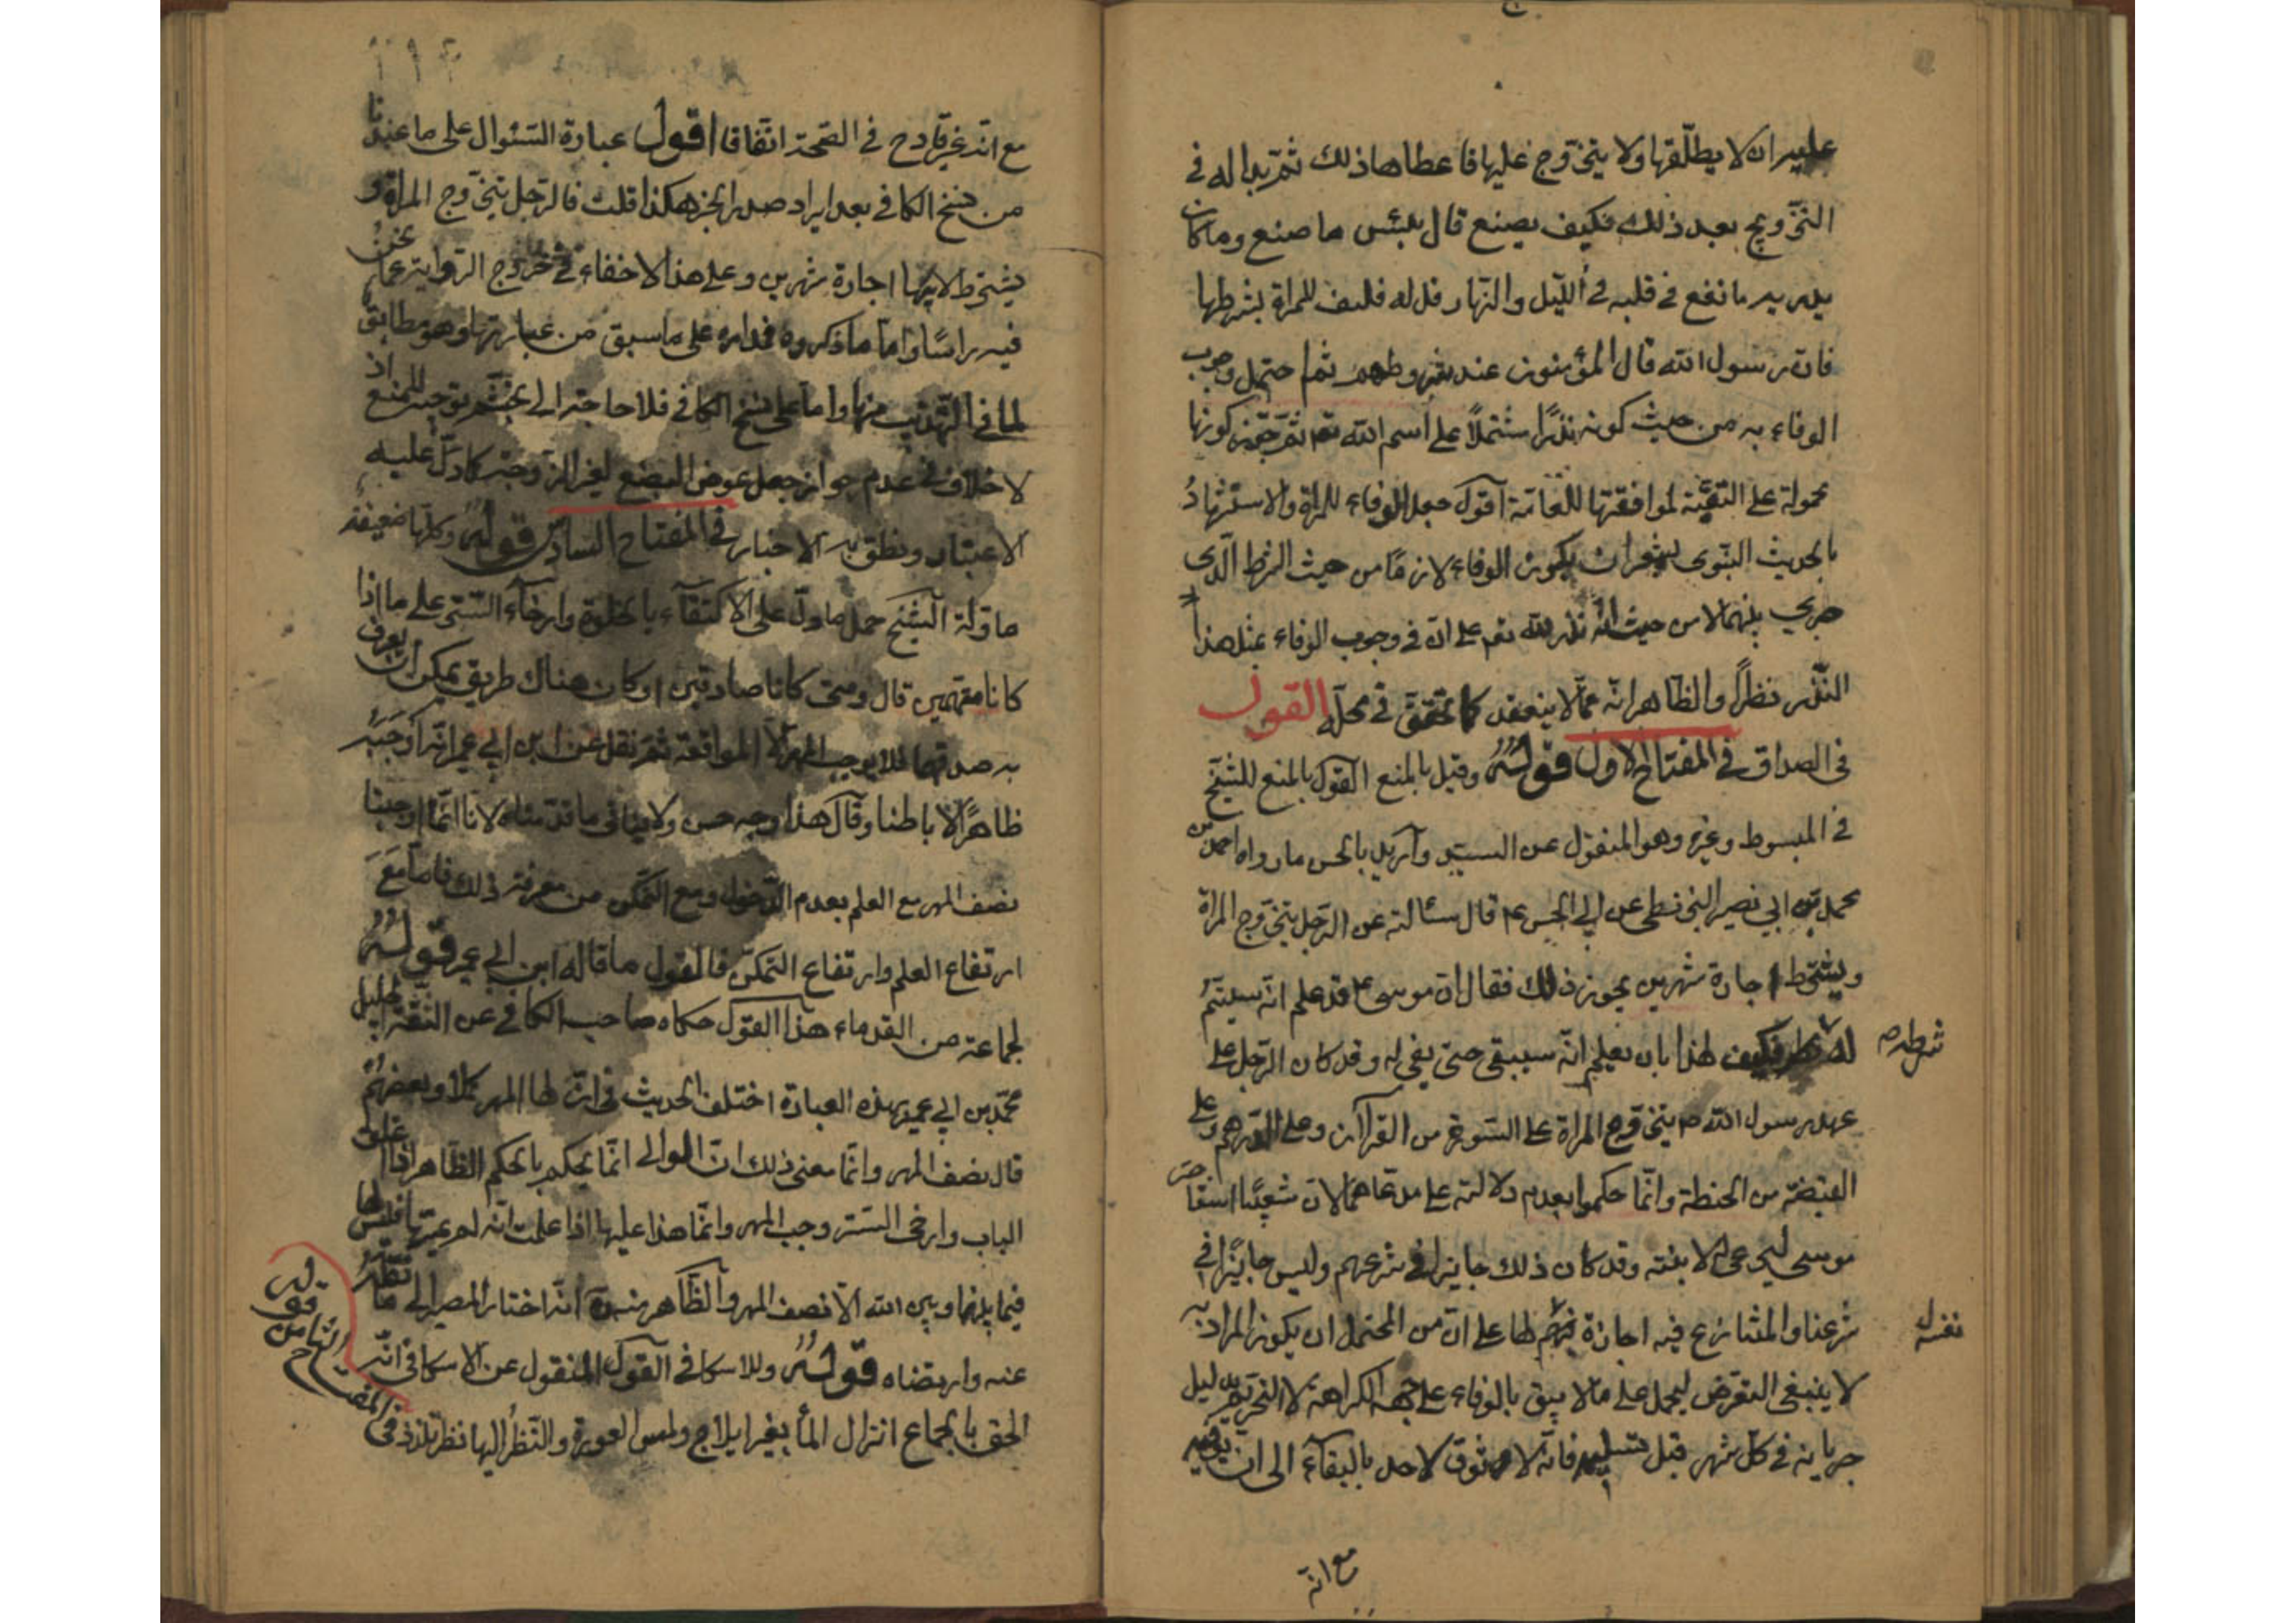 عليه ان لا يطلّقها ولا يتزوج عليها فاعطاها ذلك ثم بدا له في
التزويج بعد ذلك فكيف يصنع قال بئس ما صنع وما كان
يدريه ما يقع في قلبه في الليل والنهار قل له فليف للمراة بشرطها
فان رسول الله قال المؤمنون عند شروطهم ثم احتمل وجوب
الوفاء به من حيث كونه نذرًا مشتملًا على اسم الله تعم ثم جوّز كونها
محمولة على التقيّة لموافقتها للعامّة اقول جعل الوفاء للمراة والاستشهاد
بالحديث النبوى يشعر ان يكون الوفاء لازمًا من حيث الشرط الّذى
جرى بينهما لا من حيث انّه نذر لله تعم على انّ في وجوب الوفاء بمثل هذا
النّذر نظرًا والظاهر انه ممّا لا ينعقد كما تحقق في محلّه القول
في الصداق في المفتاح الاول قولُهُ وقيل بالمنع القول بالمنع للشيخ
في المبسوط وغيره وهو المنقول عن السيّد واريد بالحسن ما رواه احمد بن
محمد بن ابي نصر البزنطى عن ابي الحسن ع قال سئالته عن الرّجل يتزوج المراة
ويشترط اجارة شهرين يجوز ذلك فقال ان موسى ع قد علم انّه سيتمّ
له شرطه فكيف لهذا بان يعلم انّه سيبقى حتى يفى له وقد كان الرّجل على
شرطه ص
عهد رسول الله ص يتزوج المراة على السّورة من القران وعلى الدرهم وعلى
القبضة من الحنطة وانّما حكموا بعدم دلالته على مدعاهما لانّ شعيبًا استاجر
موسى ليرعى له لا بنته وقد كان ذلك جايزا في شرعهم وليس جايزًا في
شرعنا والمتنازع فيه اجارة نفسه لها على انّ من المحتمل ان يكون المراد به
نفسه
لا ينبغى التعرّض ليحمل على ما لا يثق بالوفاء على جهة الكراهة لا التحريم بدليل
جريانه في كلّ شهر قبل تسليمه فانّه لا وثوق لاحد بالبقاء الى ان يوفيه
مع انّه
مع انّه غير قادح في الصّحة اتّفاقا اقول عبارة السّئوال على ما عندنا
من نسخ الكافي بعد ايراد صدر الخبر هكذا قلت فالرّجل يتزوج المراة و
يشترط لابيها اجارة شهرين وعلى هذا لا خفاء في خروج الرّواية عما نحن
فيه راسًا وامّا ما ذكروه فمداره على ما سبق من عبارتها وهو مطابق
لما في التّهذيب منها واما على نسخ الكافي فلا حاجة الى تجشّم توجيه للمنع اذ
لا خلاف في عدم جواز جعل عوض البضع لغير الزوجة كما دلّ عليه
الاعتبار ونطق به الاخبار في المفتاح السادس قولُهُ وكلّها ضعيفة
ماوّلة الشيخ حمل ما دلّ على الاكتفاء بالخلوة وارخاء السّتر على ما اذا
كانا متّهمين قال ومتى كانا صادقين او كان هناك طريق يمكن ان يعرف
به صدقهما فلا يوجب المهر الّا المواقعة ثم نقل عن ابن ابي عمير انّه اوجبه
ظاهرًا لا باطنا وقال هذا وجه حسن ولا ينافى ما قدّمناه لانّا انّما اوجبنا
نصف المهر مع العلم بعدم الدّخول ومع التّمكن من معرفة ذلك فامّا مع
ارتفاع العلم وارتفاع التمكّن فالقول ما قاله ابن ابي عمير قولُهُ
لجماعة من القدماء هذا القول حكاه صاحب الكافي عن الثّقة الجليل
محمّد بن ابي عمير بهذه العبارة اختلف الحديث في انّ لها المهر كملًا وبعضهم
قال نصف المهر وانّما معنى ذلك انّ الوالى انّما يحكم بالحكم الظّاهر اذا اغلق
الباب وارخى السّتر وجب المهر وانّما هذا عليها اذا علمت انّه لم يمسّها فليس لها
فيما بينها وبين الله الّا نصف المهر والظّاهر منه انّه اختار المصير الى ما نقله
عنه وارتضاه قولُهُ وللاسكافي القول المنقول عن الاسكافي انّه
الحق بالجماع انزال الماء بغير ايلاج ولمس العورة والنّظر اليها نظر تلذّذ في
المفتاح
الثامن
قوله